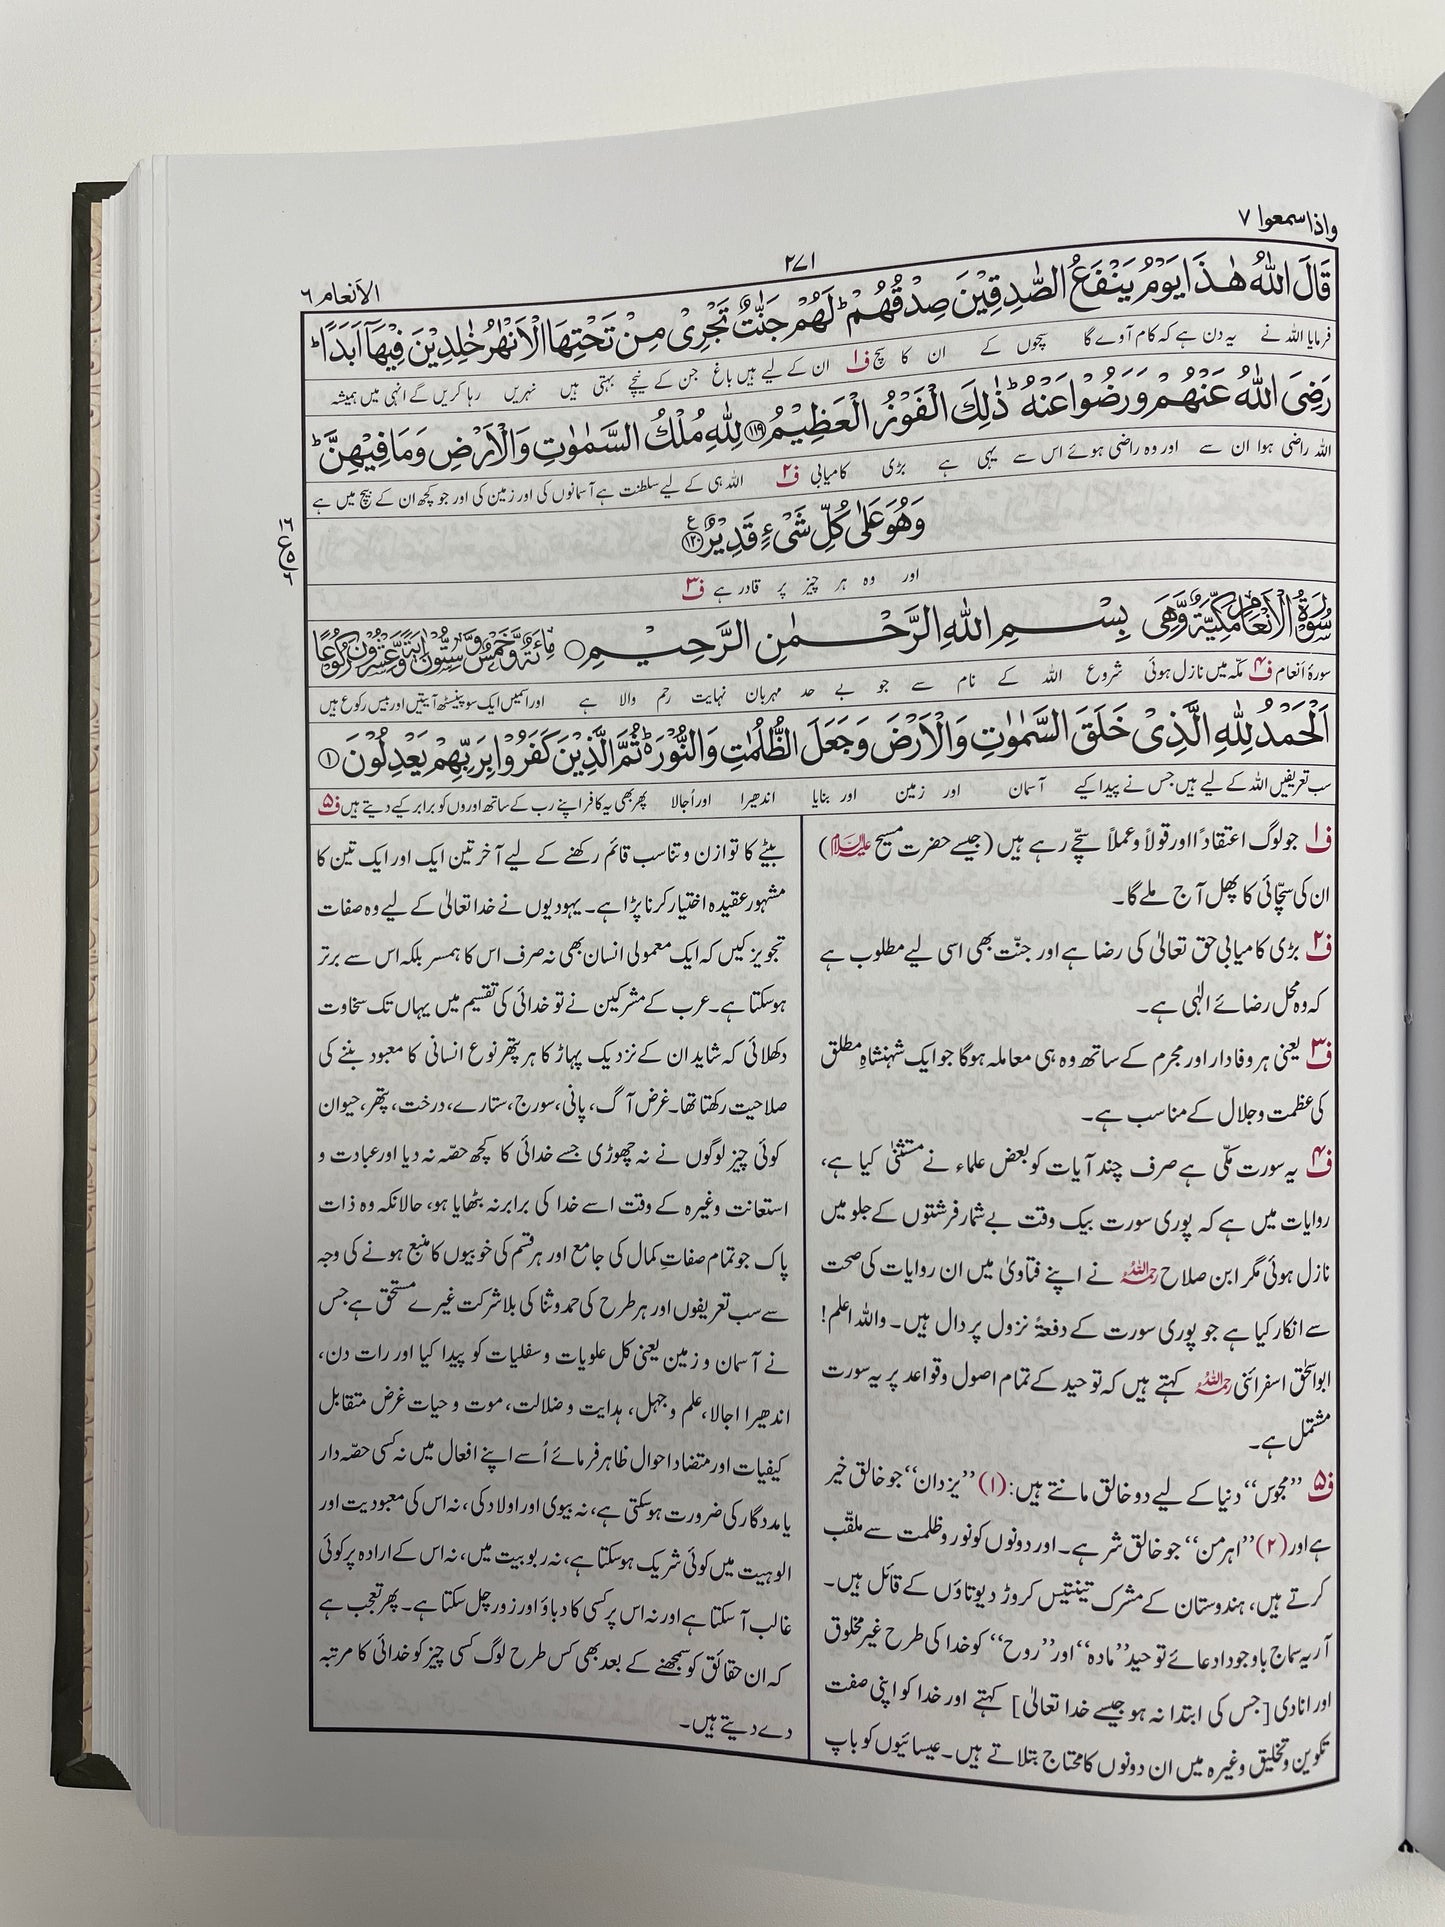 واذا سمعوا ۷
۲۷۱
الانعام ٦
قَالَ اللّٰهُ هٰذَا يَوْمُ يَنْفَعُ الصّٰدِقِيْنَ صِدْقُهُمْ ؕ لَهُمْ جَنّٰتٌ تَجْرِىْ مِنْ تَحْتِهَا الْاَنْهٰرُ خٰلِدِيْنَ فِيْهَآ اَبَدًا ؕ
فرمایا اللہ نے یہ دن ہے کہ کام آوے گا سچوں کے ان کا سچ ف۱ ان کے لیے ہیں باغ جن کے نیچے بہتی ہیں نہریں رہا کریں گے انہی میں ہمیشہ
رَضِىَ اللّٰهُ عَنْهُمْ وَرَضُوْا عَنْهُ ؕ ذٰلِكَ الْفَوْزُ الْعَظِيْمُ ﴿۱۱۹﴾ لِلّٰهِ مُلْكُ السَّمٰوٰتِ وَالْاَرْضِ وَمَا فِيْهِنَّ ؕ
اللہ راضی ہوا ان سے اور وہ راضی ہوئے اس سے یہی ہے بڑی کامیابی ف۲ اللہ ہی کے لیے سلطنت ہے آسمانوں کی اور زمین کی اور جو کچھ ان کے بیچ میں ہے
وَهُوَ عَلٰى كُلِّ شَىْءٍ قَدِيْرٌ ﴿۱۲۰﴾ ع
۱٦
ع ۵
٦
اور وہ ہر چیز پر قادر ہے ف۳
سُوْرَةُ الْاَنْعَامِ مَكِّيَّةٌ وَّهِىَ بِسْمِ اللّٰهِ الرَّحْمٰنِ الرَّحِيْمِ مِائَةٌ وَّخَمْسٌ وَّسِتُّوْنَ اٰيَةً وَّعِشْرُوْنَ رُكُوْعًا
سورۂ انعام ف۴ مکّہ میں نازل ہوئی شروع اللہ کے نام سے جو بے حد مہربان نہایت رحم والا ہے اور اسمیں ایک سو پینسٹھ آیتیں اور بیس رکوع ہیں
اَلْحَمْدُ لِلّٰهِ الَّذِىْ خَلَقَ السَّمٰوٰتِ وَالْاَرْضَ وَجَعَلَ الظُّلُمٰتِ وَالنُّوْرَ ؕ ثُمَّ الَّذِيْنَ كَفَرُوْا بِرَبِّهِمْ يَعْدِلُوْنَ ﴿۱﴾
سب تعریفیں اللہ کے لیے ہیں جس نے پیدا کیے آسمان اور زمین اور بنایا اندھیرا اور اُجالا پھر بھی یہ کافر اپنے رب کے ساتھ اوروں کو برابر کیے دیتے ہیں ف۵
ف۱ جو لوگ اعتقادًا اور قولاً وعملاً سچّے رہے ہیں (جیسے حضرت مسیح علیہ السلام)
ان کی سچّائی کا پھل آج ملے گا۔
ف۲ بڑی کامیابی حق تعالیٰ کی رضا ہے اور جنّت بھی اسی لیے مطلوب ہے
کہ وہ محل رضائے الٰہی ہے۔
ف۳ یعنی ہر وفادار اور مجرم کے ساتھ وہ ہی معاملہ ہوگا جو ایک شہنشاہِ مطلق
کی عظمت و جلال کے مناسب ہے۔
ف۴ یہ سورت مکّی ہے صرف چند آیات کو بعض علماء نے مستثنیٰ کیا ہے،
روایات میں ہے کہ پوری سورت بیک وقت بے شمار فرشتوں کے جلو میں
نازل ہوئی مگر ابن صلاح رحمہ اللہ نے اپنے فتاویٰ میں ان روایات کی صحت
سے انکار کیا ہے جو پوری سورت کے دفعۃً نزول پر دال ہیں۔ واللہ اعلم!
ابواسحٰق اسفرائنی رحمہ اللہ کہتے ہیں کہ توحید کے تمام اصول وقواعد پر یہ سورت
مشتمل ہے۔
ف۵ ’’مجوس‘‘ دنیا کے لیے دو خالق مانتے ہیں: (۱) ’’یزدان‘‘ جو خالق خیر
ہے اور (۲) ’’اہرمن‘‘ جو خالق شر ہے۔ اور دونوں کو نور و ظلمت سے ملقّب
کرتے ہیں، ہندوستان کے مشرک تینتیس کروڑ دیوتاؤں کے قائل ہیں۔
آریہ سماج باوجود ادعائے توحید ’’مادہ‘‘ اور ’’روح‘‘ کو خدا کی طرح غیر مخلوق
اور انادی [جس کی ابتدا نہ ہو جیسے خدا تعالیٰ] کہتے اور خدا کو اپنی صفت
تکوین وتخلیق وغیرہ میں ان دونوں کا محتاج بتلاتے ہیں۔ عیسائیوں کو باپ
بیٹے کا توازن و تناسب قائم رکھنے کے لیے آخر تین ایک اور ایک تین کا
مشہور عقیدہ اختیار کرنا پڑا ہے۔ یہودیوں نے خدا تعالیٰ کے لیے وہ صفات
تجویز کیں کہ ایک معمولی انسان بھی نہ صرف اس کا ہمسر بلکہ اس سے برتر
ہوسکتا ہے۔ عرب کے مشرکین نے تو خدائی کی تقسیم میں یہاں تک سخاوت
دکھلائی کہ شاید ان کے نزدیک پہاڑ کا ہر پتھر نوع انسانی کا معبود بننے کی
صلاحیت رکھتا تھا۔ غرض آگ، پانی، سورج، ستارے، درخت، پتھر، حیوان
کوئی چیز لوگوں نے نہ چھوڑی جسے خدائی کا کچھ حصّہ نہ دیا اور عبادت و
استعانت وغیرہ کے وقت اسے خدا کی برابر نہ بٹھایا ہو، حالانکہ وہ ذات
پاک جو تمام صفاتِ کمال کی جامع اور ہر قسم کی خوبیوں کا منبع ہونے کی وجہ
سے سب تعریفوں اور ہر طرح کی حمد وثنا کی بلاشرکت غیرے مستحق ہے جس
نے آسمان و زمین یعنی کل علویات وسفلیات کو پیدا کیا اور رات دن،
اندھیرا اجالا، علم وجہل، ہدایت و ضلالت، موت و حیات غرض متقابل
کیفیات اور متضاد احوال ظاہر فرمائے اُسے اپنے افعال میں نہ کسی حصّہ دار
یا مددگار کی ضرورت ہوسکتی ہے، نہ بیوی اور اولاد کی، نہ اس کی معبودیت اور
الوہیت میں کوئی شریک ہوسکتا ہے، نہ ربوبیت میں، نہ اس کے ارادہ پر کوئی
غالب آسکتا ہے اور نہ اس پر کسی کا دباؤ اور زور چل سکتا ہے۔ پھر تعجب ہے
کہ ان حقائق کو سمجھنے کے بعد بھی کس طرح لوگ کسی چیز کو خدائی کا مرتبہ
دے دیتے ہیں۔